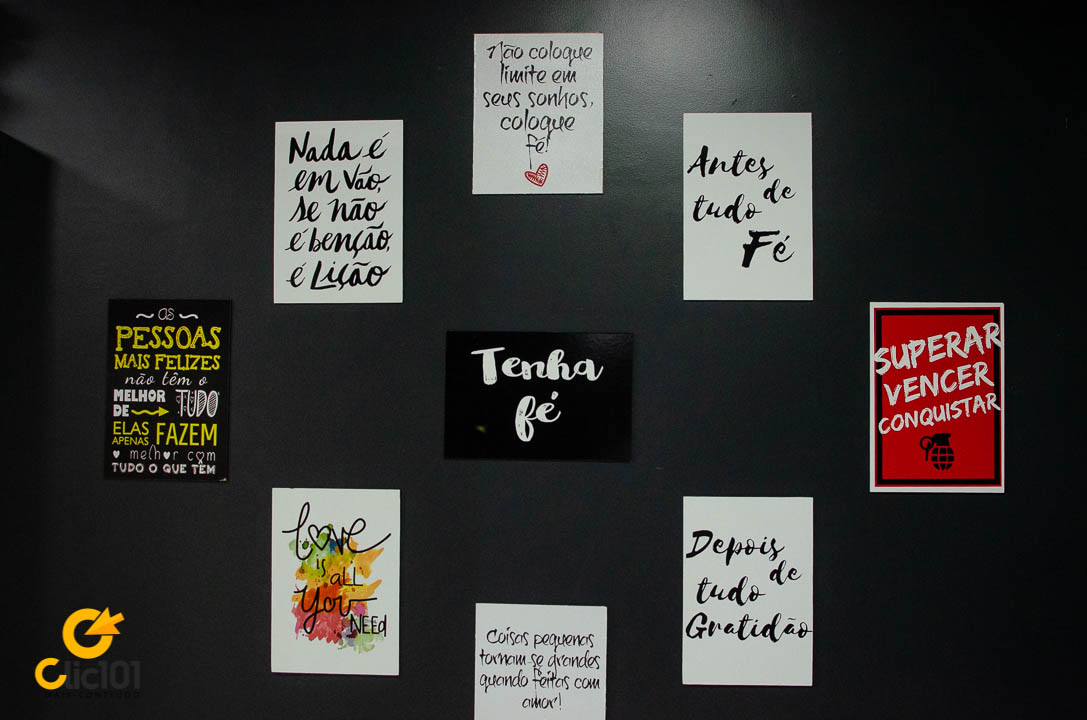 Não coloque
limite em
seus sonhos,
coloque
fé!
Nada é
em vão,
se não
é benção,
é Lição
Antes
de
tudo
Fé
AS
PESSOAS
MAIS FELIZES
não têm o
MELHOR
DE TUDO
ELAS
APENAS FAZEM
melhor com
TUDO O QUE TÊM
Tenha
fé
SUPERAR
VENCER
CONQUISTAR
Love
is all
You
NEEd
Coisas pequenas
tornam se grandes
quando feitas com
amor!
Depois
de
tudo
Gratidão
Clic101